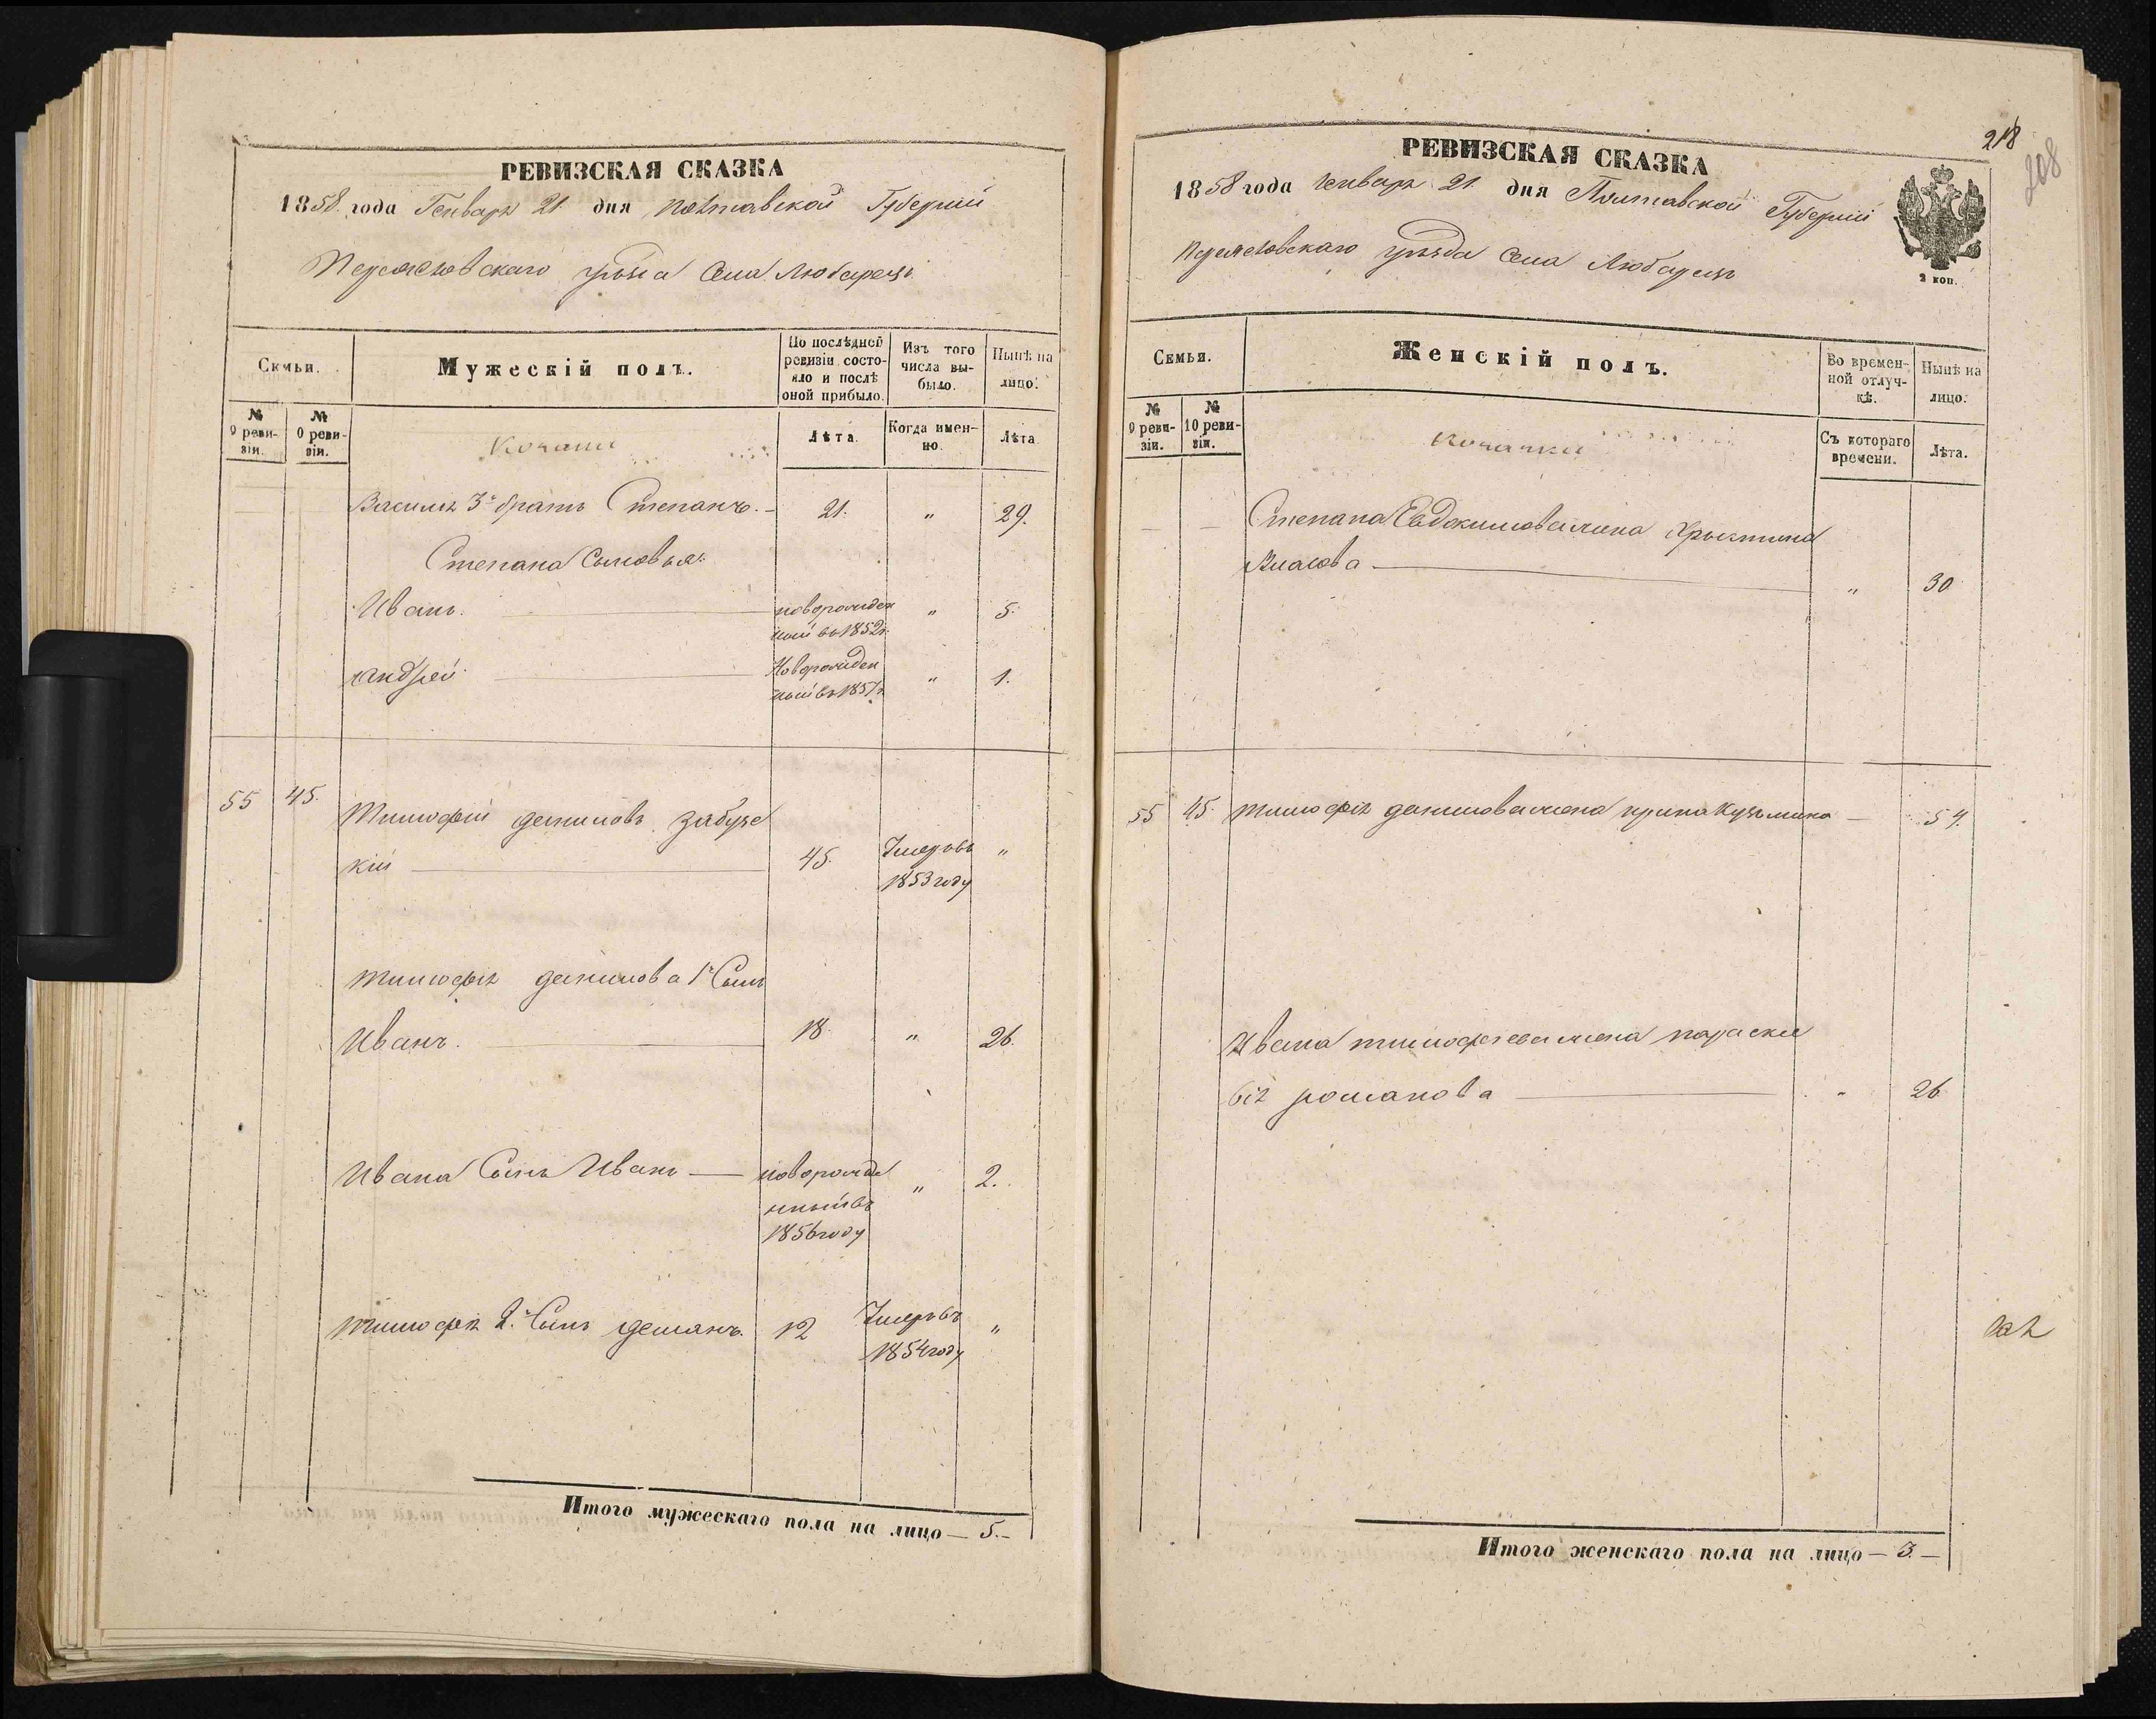 РЕВИЗСКАЯ СКАЗКА
1858 года Генваря 21 дня Полтавской Губерніи
Переяславскаго уѣзда Села Любарецъ
Семьи.
Мужескій полъ.
По послѣдней ревизіи состояло и послѣ оной прибыло.
Изъ того числа выбыло.
Нынѣ на лицо.
№ 9 ревизіи.
№ 0 ревизіи.
Лѣта.
Когда именно.
Лѣта
Василя 3й братъ Степанъ. 21. „ 29.
Степана Сыновья:
Иванъ. новорожден „ 5.
ный въ 1852г.
Андрей. Новорожден „ 1.
ный въ 1857г.
55 45. Тимофій Даниловъ Забузс
кій 45. Умеръ въ „
1853 году
Тимофея Данилова 1й Сынъ
Иванъ. 18. „ 26.
Ивана Сынъ Иванъ — новорожде „ 2.
нный въ
1856 году
Тимофея 2й Сынъ Демянъ. 12 Умеръ въ „
1854 году
Итого мужескаго пола на лицо — 5. —
218
208
РЕВИЗСКАЯ СКАЗКА
1858 года Генваря 21. дня Полтавской Губерніи
Переяславскаго уѣзда Села Любарецъ
2 коп.
Семьи.
Женскій полъ.
Во временной отлучкѣ.
Нынѣ на лицо.
№ 9 ревизіи.
№ 10 ревизіи.
Съ котораго времени.
Лѣта.
Степана Евдокимова жена Хрыстина
Власова — „ 30
55 45 Тимофея Данилова жена Ирина Кузьмина — 54.
Ивана Тимофеева жена Параске
вія Романова — „ 26
Итого женскаго пола на лицо — 3. —